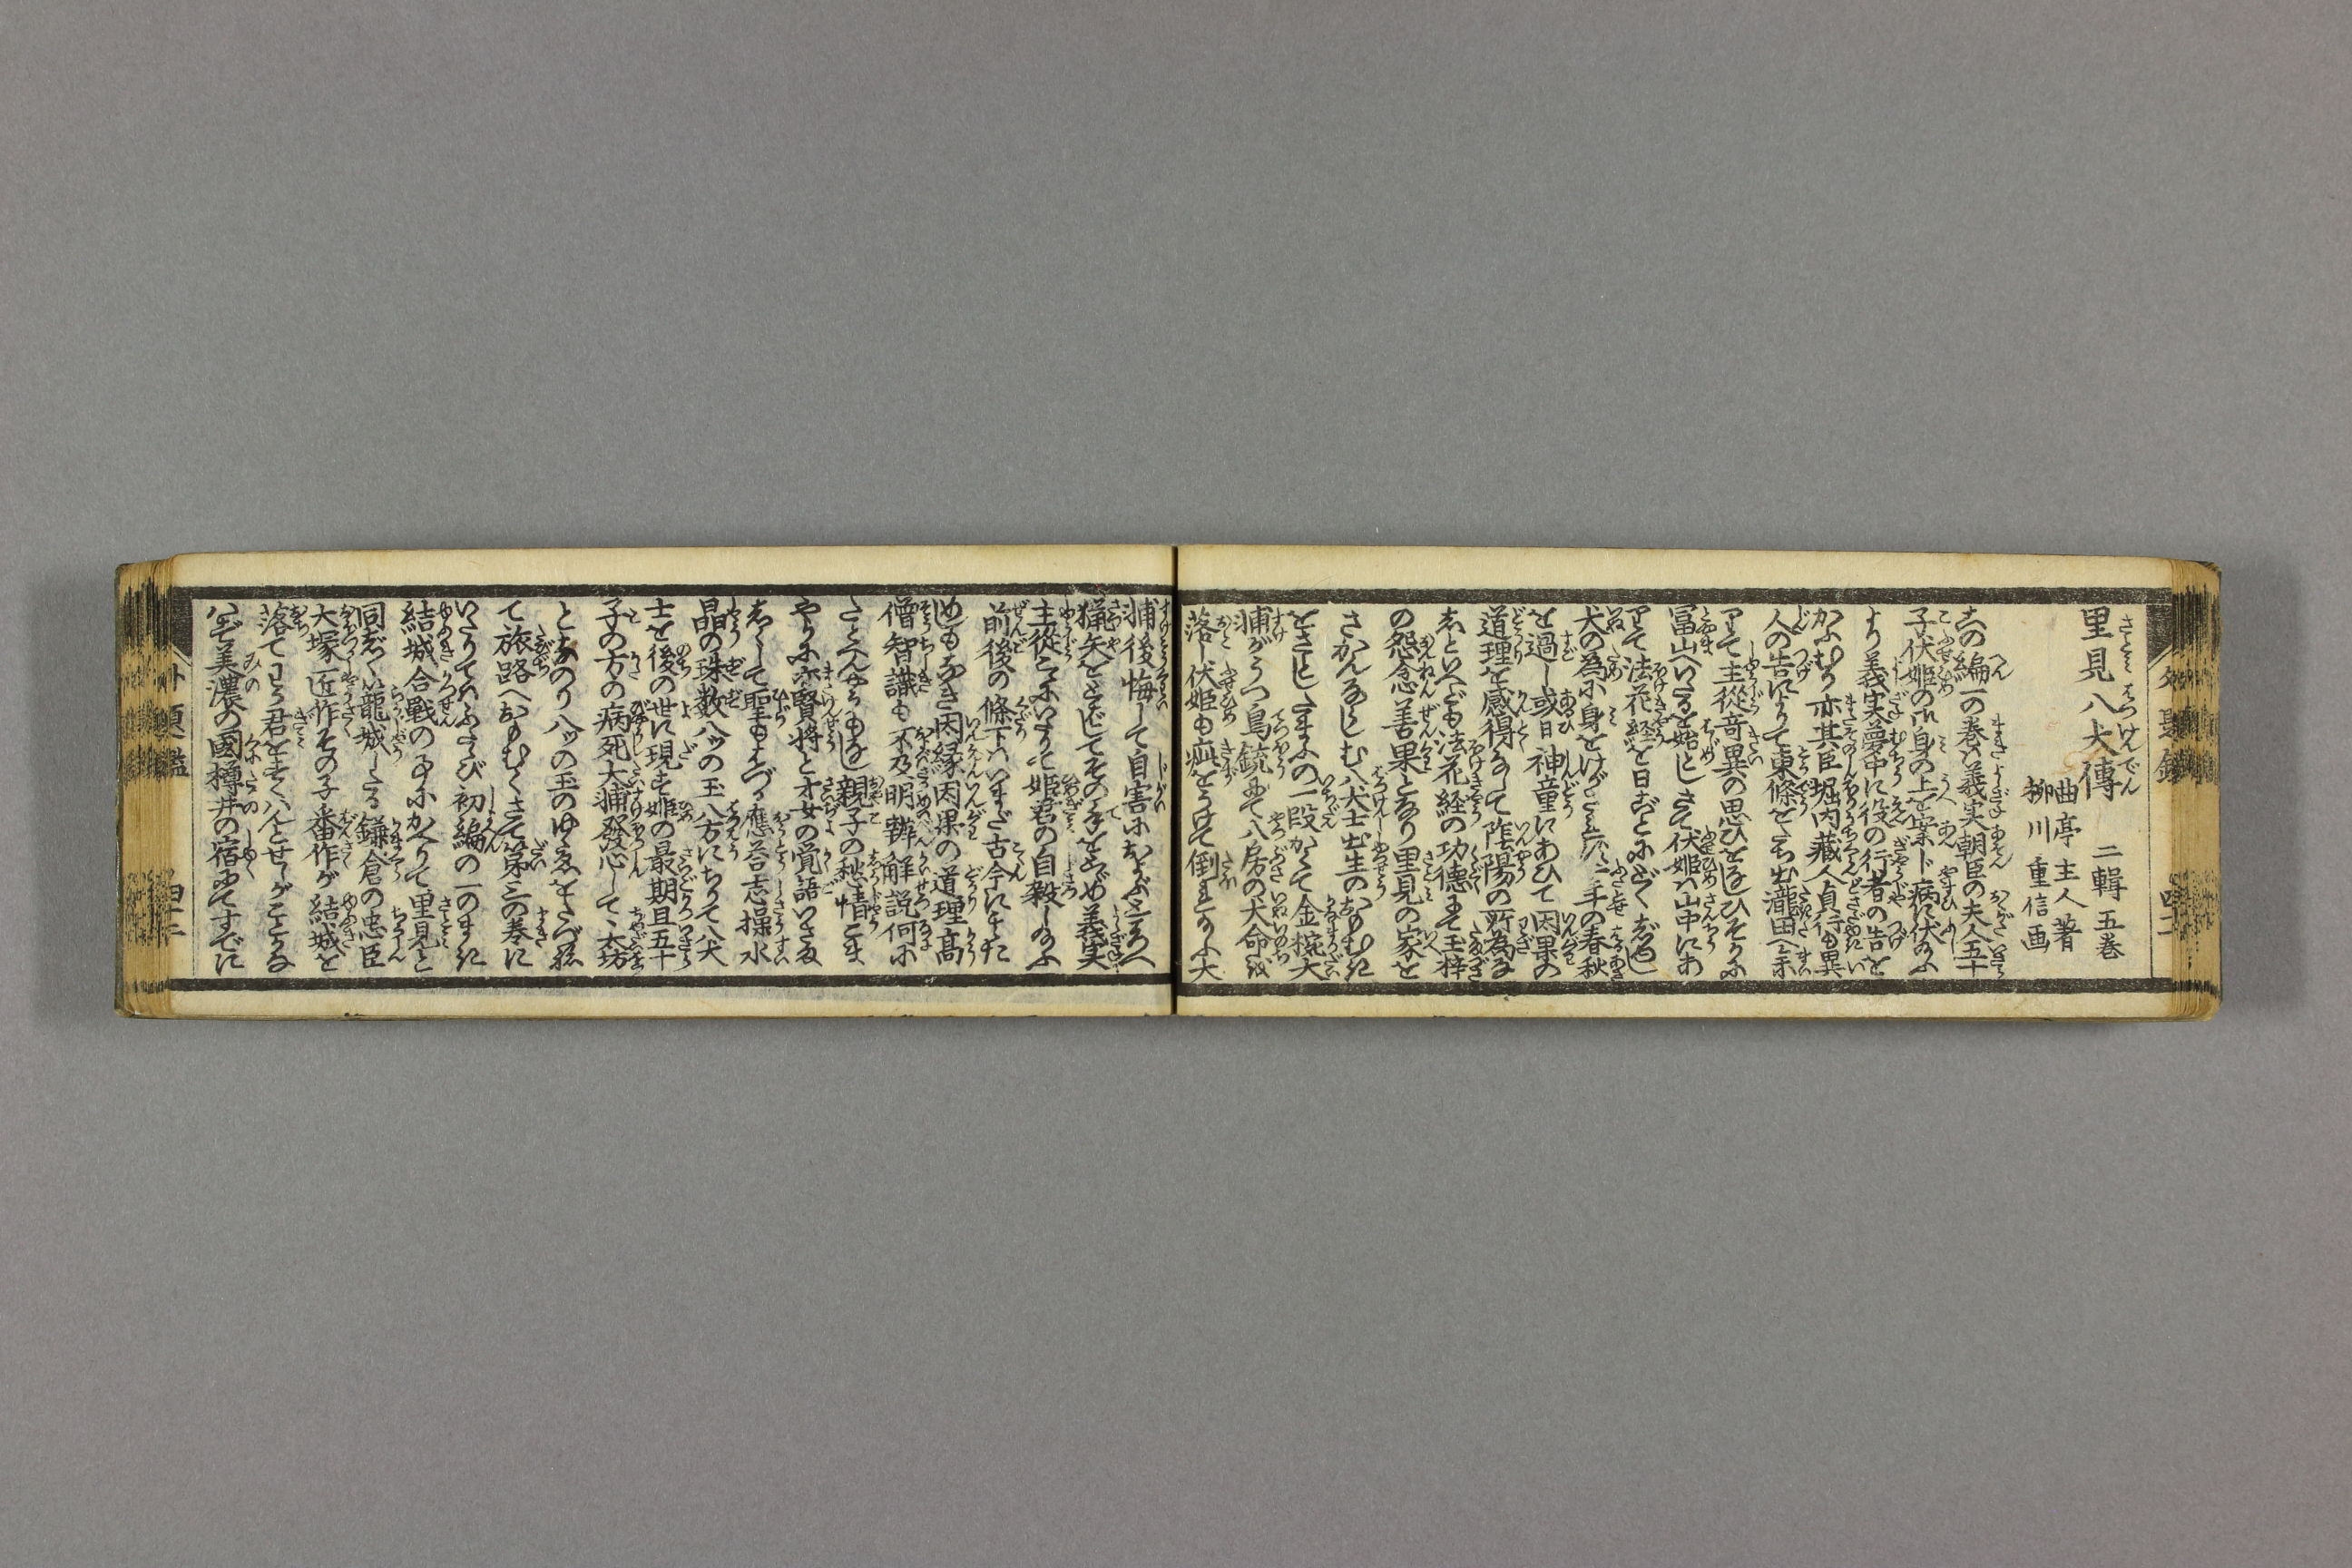 里見八犬傳 二輯五巻
曲亭主人著
柳川重信画
この編一の巻は義実朝臣の夫人五十
子伏姫の御身の上を案じ病に伏給ふ
より義実夢中に役の行者の告を
かふむり亦其臣堀内蔵人貞行も異
人の告によりて東條をたち出瀧田へ参
りて主從竒異の思ひをなしひそかに
冨山へいたるを始としさて伏姫は山中にあ
りて法花経を日ごとにどくじゆし
犬の為に身をけがされず二年の春秋
を過し或日神童にあひて因果の
道理を感得なして陰陽の所為な
しといへども法花経の功徳にて玉梓
の怨念善果となり里見の家を
さかんならしむ八犬士出生のおもむき
をさとしたまふの一段かくて金椀大
輔がうつ鳥銃にて八房の犬命を
落し伏姫も疵をうけて倒れ給ふ大
輔後悔して自害におよぶところへ
猟矢をとばしてその手をとゞめ義実
主從こゝにいたりて姫君の自殺し給ふ
前後の條下はいまだ古今にきた
めしもなき因縁因果の道理高
僧智識も不及明辨解説何に
たとへんかたもなし親子の愁情こま
やかに亦賢将と才女の覚語いさぎ
よくして聖もはづる應荅志操水
晶の珠数八ッの玉八方にちりて八犬
士を後の世に現す姫の最期且五十
子の方の病死大輔發心して丶大坊
となのり八ッの玉のゆくゑをたづね
て旅路へおもむくさて第三の巻に
いたりてはふたゝび初編の一のまき
結城合戰の事にかへりて里見と
同じく籠城したる鎌倉の忠臣
大塚匠作その子番作が結城を
落てわか君をすくはんとせしがことなら
ず美濃の國樽井の宿にてすでに
外題鑑 四十二